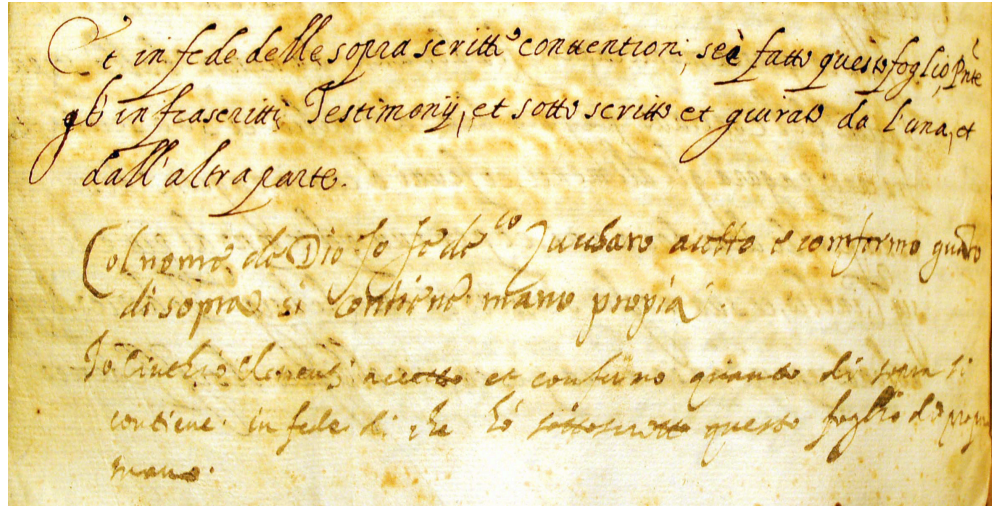 Et in fede delle soprascritte conventioni, se è fatto questo foglio, Pnte
gl'infrascritti Testimonij, et sottoscritto et giurato da l'una, et
dall'altra parte.
Col nome de Dio Io Fede^co accetto e confermo quato
di sopra si contiene mano propia
Io Clementi accetto et confirmo quanto di sopra si
contiene in fede di che hò sottoscritto questo foglio di propria
mano.